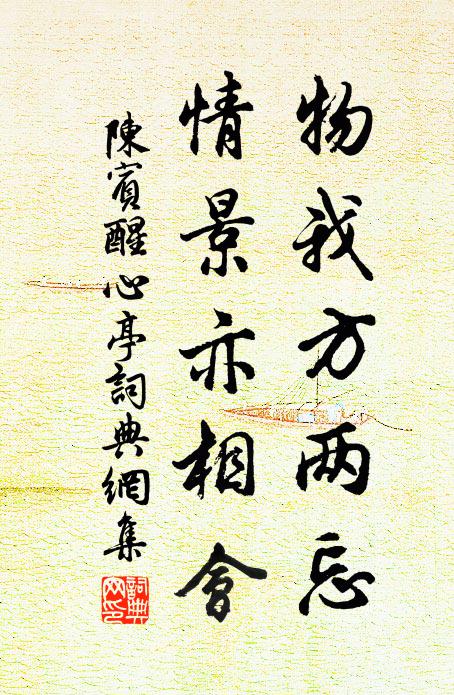 物我方两忘
情景亦相會
陳賓醒心亭詞典網集
詞典網印